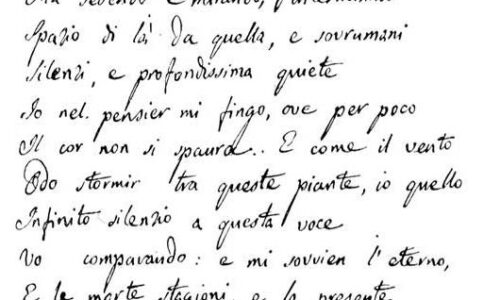 sedendo e mirando,
Spazio di là da quella, e sovrumani
Silenzi, e profondissima quiete
Io nel. pensier mi fingo, ove per poco
Il cor non si spaura.. E come il vento
Odo stormir tra queste piante, io quello
Infinito silenzio a questa voce
Vo comparando: e mi sovvien l'eterno,
E le morte stagioni, e la presente